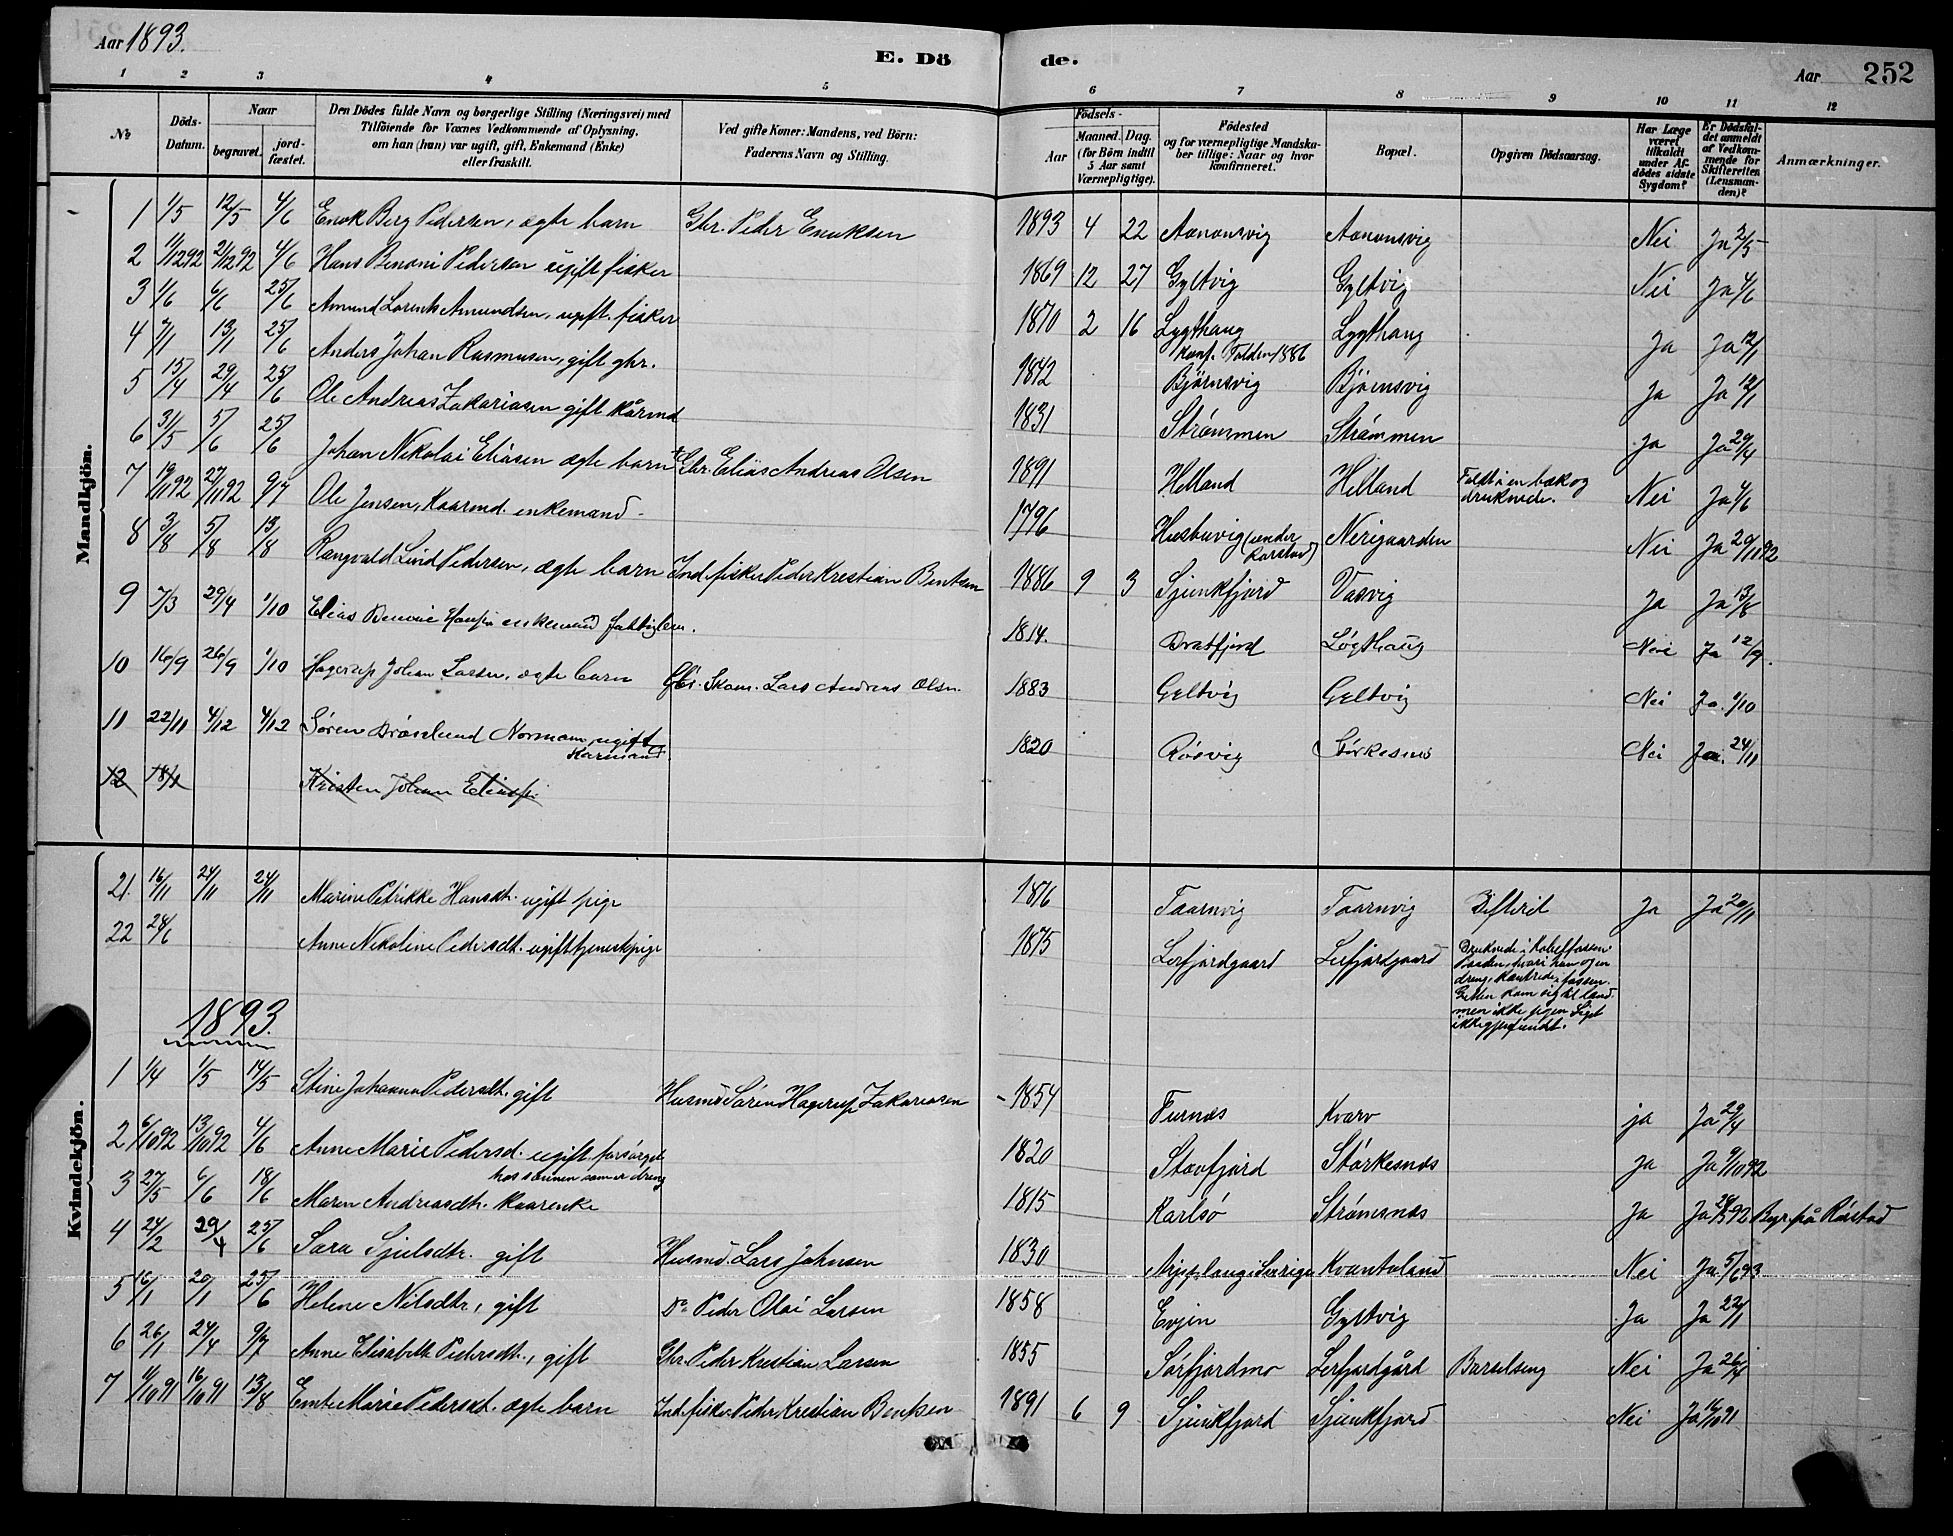 Aar 1893.
E. Dö de.
Aar 252
1 2 3 4 5 6 7 8 9 10 11 12
№
Döds-Datum.
Naar
begravet.
jordfæstet.
Den Dödes fulde Navn og borgerlige Stilling (Næringsvei) med
Tilföiende for Voxnes Vedkommende af Oplysning,
om han (hun) var ugift, gift, Enkemand (Enke)
eller fraskilt.
Ved gifte Koner: Mandens, ved Börn:
Faderens Navn og Stilling.
Födsels-
Aar
Maaned. Dag.
(for Börn indtil
5 Aar samt
Værnepligtige).
Födested
og for værnepligtige Mandskaber tillige: Naar og hvor
konfirmeret.
Bopæl.
Opgiven Dödsaarsag.
Har Læge
været
tilkaldt
under Afdödes sidste
Sygdom?
Er Dödsfaldet anmeldt
af Vedkommende for
Skifteretten
(Lensmanden)?
Anmærkninger.
Mandkjön.
1 1/5 12/5 4/6 Enok Berg Pedersen, ægte barn Gbr. Peder Enoksen 1893 4 22 Aanonsvig Aanonsvig Nei Ja 2/5
2 1/12 92 21/12 92 4/6 Hans Benoni Pedersen ugift fisker 1869 12 27 Gyltvig Gyltvig Nei Ja 4/6
3 1/6 6/6 25/6 Amund Lorents Amundsen, ugift fisker 1870 2 16 Lygthaug Lygthaug Ja Ja 12/1
konf. Folden 1886
4 7/1 13/1 25/6 Anders Johan Rasmusen, gift gbr. 1842 Bjørnsvig Bjørnsvig Ja Ja 12/1
5 15/4 29/4 25/6 Ole Andreas Zakariasen gift kårmd 1831 Strømmen Strømmen Ja Ja 29/4
6 31/5 5/6 25/6 Johan Nikolai Eliasen ægte barn Gbr. Elias Andreas Olsen 1891 Helland Helland Faldt i en bæk og
druknede. Nei Ja 4/6
7 19/11 92 27/11 92 9/7 Ole Jensen, Kaarmd. enkemand 1796 Husbuvig (under
Rørstad) Nerigaarden Nei Ja 29/11 92
8 3/8 5/8 13/8 Rangvald Lind Pedersen, ægte barn Ind. fisker Peder Krestian Bentsen 1886 9 3 Sjunkfjord Vasvig Ja Ja 13/8
9 7/3 29/4 1/10 Elias Benoni enkemand fattiglem. 1814. Løgthaug Nei Ja 12/9.
10 16/9 26/9 1/10 Hagerup Johan Larsen, ægte barn Gbr. Skom. Lars Andreas Olsen. 1883 Geltvig Geltvig Nei Ja. 1/10
11 22/11 4/12 4/12 Søren Normann, ugift
Karmand. 1820 Røsvig Størkesnes Nei Ja. 24/11
12 18/1 Kristen Johan
Kvindekjön.
21. 16/11 24/11 24/11 Marine Petrikke Hansdt. ugift pige 1876 Taarnvig Taarnvig Difterit Ja Ja 20/11
22 28/6 Anne Nikoline Pedersdt. ugift tjenestepige 1875 Lerfjordgaard Leifjordgaard Druknede i
Baaden, hvori hun og en
dreng, kantrede i fossen.
Gutten kom sig til land
men ikke pigen. Liget
ikke gjenfundt.
1893.
1 1/4 1/5 14/5 Stine Johanna Pedersdt. gift Husmd. Søren Hagerup Zakariasen 1854 Furnes Kvarv ja Ja 29/4
2 6/10 92 13/10 92 4/6 Anne Marie Pedersd. ugift forsørget
hos sønnen som er dreng 1820 Stavfjord Størkesnæs Ja Ja 9/10 92
3 27/5 6/6 18/6 Maren Andreasdtr. kaarenke 1815 Karlsø Strømsnæs Ja Ja 28/5 92 Begr. på Rørstad
4 24/2 29/4 25/6 Sara Sjulsdtr. gift Husmd. Lars Johnsen 1830 Arjeplaug i Sverige Kvantoland Nei Ja. 5/6 93
5 16/1 20/1 25/6 Helene Nilsdtr, gift Do Peder Olai Larsen 1858 Evjen Gyltvig Ja Ja 22/1
6 26/1 24/4 9/7 Anne Elisabeth Pedersdt., gift Gbr. Peder Kristian Larsen 1855 Sørfjordmo Lerfjordgård Barselseng Nei Ja 26/4
7 11/10 91 16/10 91 13/8 Marie Pedersdt. ægte barn Ind. fisker Peder Kristian Bentsen 1891 6 9 Sjunkfjord Sjunkfjord Nei Ja 16/10 91